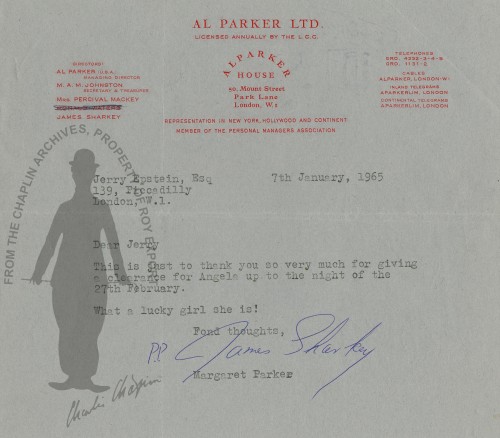 AL PARKER LTD.
LICENSED ANNUALLY BY THE L.C.C.
ALPARKER
HOUSE
50, Mount Street
Park Lane
London, W1
DIRECTORS:
AL PARKER (U.S.A.)
MANAGING DIRECTOR
M. A. M. JOHNSTON
SECRETARY & TREASURER
MRS. PERCIVAL MACKEY
JAMES SHARKEY
TELEPHONES
GRO. 4232-3-4-5
CABLES
ALPARKER, LONDON-W1
INLAND TELEGRAMS
APARKERLIM, LONDON
CONTINENTAL TELEGRAMS
APARKERLIM, LONDON
REPRESENTATION IN NEW YORK, HOLLYWOOD AND CONTINENT
MEMBER OF THE PERSONAL MANAGERS ASSOCIATION
Jerry Epstein, Esq 7th January, 1965
139, Piccadilly
London, W.1.
Dear Jerry
This is just to thank you so very much for giving
a clearance for Angela up to the night of the
27th February.
What a lucky girl she is!
Fond thoughts,
P.P. James Sharkey
Margaret Parker
FROM THE CHAPLIN ARCHIVES, PROPERTY OF ROY EXPORT
Charlie Chaplin